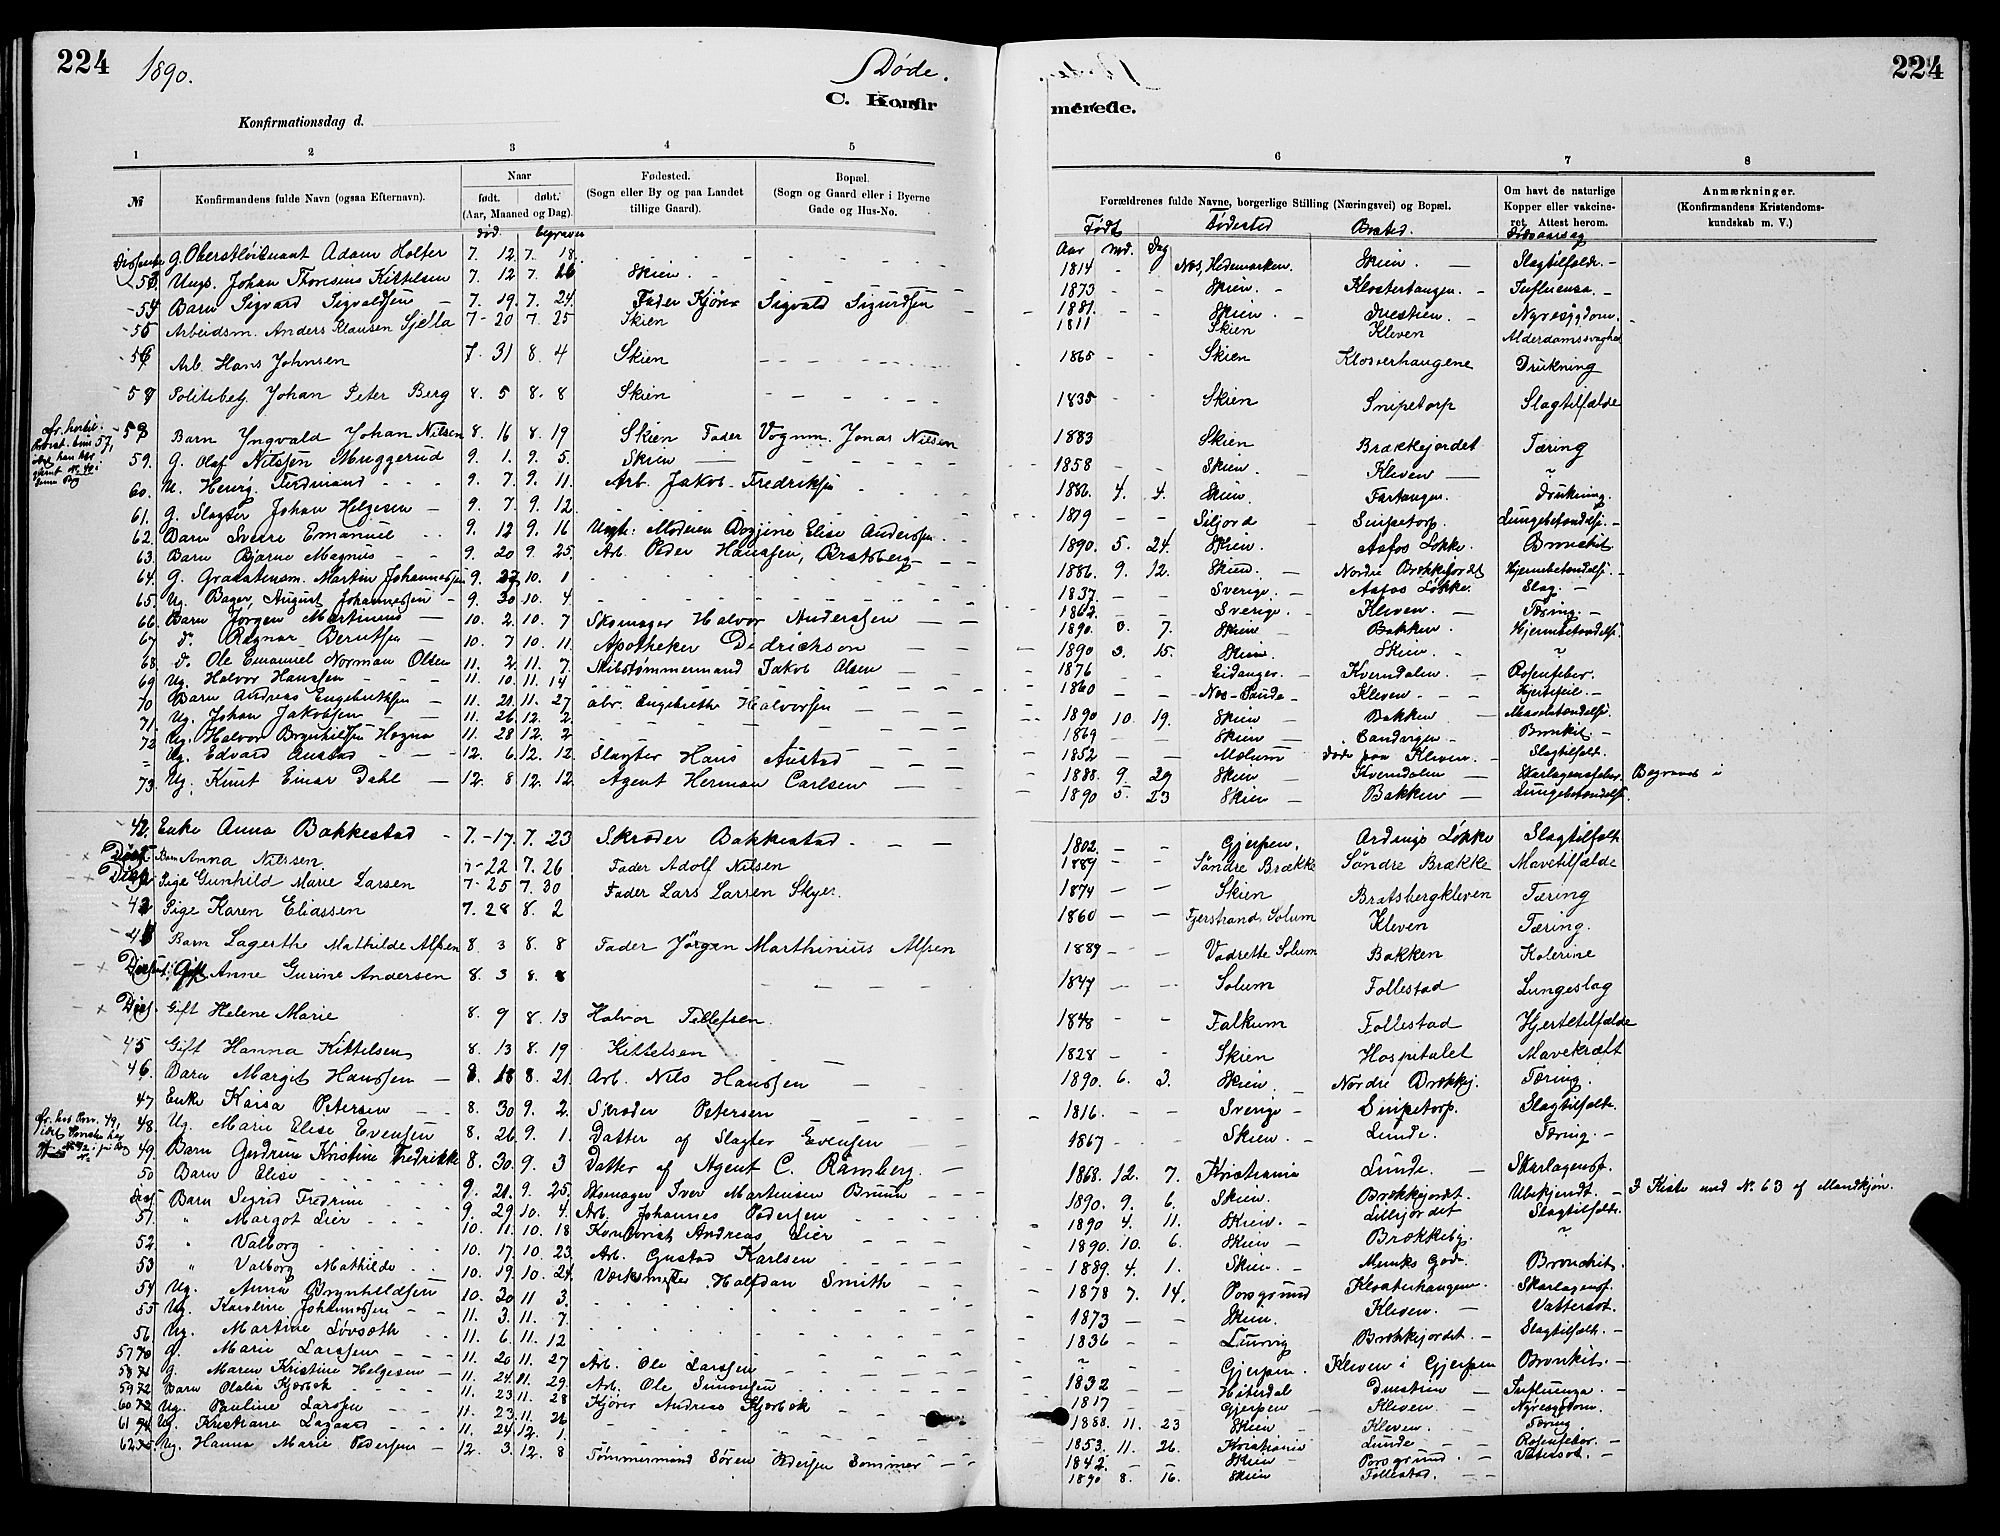 224
1890.
Døde.
C. Konfir
Konfirmationsdag d.
1 2 3 4 5
№ Konfirmandens fulde Navn (ogsaa Efternavn). Naar født. døbt. (Aar, Maaned og Dag). Fødested. (Sogn eller By og paa Landet tillige Gaard). Bopæl. (Sogn og Gaard eller i Byerne Gade og Hus-No.
død. begraven
Dissenter g. Oberstløitnant Adam Holter 7. 12 7. 18.
53 Ungk. Johan Thoresius Kittelsen 7. 12 7. 26 Skien.
54 Barn Sigvard Sigvaldsen 7. 19. 7. 24. Fader Kjører Sigvald Sigurdsen
55 Arbeidsm. Anders Klausen Sjella 7 - 20 7. 25 Skien
56 Arb. Hans Johnsen 7. 31 8. 4 Skien
57 Politibetj. Johan Peter Berg 8. 5 8. 8 Skien
58 Barn Yngvald Johan Nilsen 8. 16 8. 19 Skien Fader Vognm. Jonas Nilsen
59. g. Olaf Nilssen Muggerud 9. 1. 9. 5. Skien
60. U. Henrg. Ferdinand 9. 7. 9. 11. Arb. Jakob Fredriksen
61. g. Slagter Johan Helgesen 9. 7. 9. 12.
62. Barn Sverre Emanuel 9. 12 9. 16 Ungk. Moderen Elise Anderssen
63. Barn Bjarne Magnus 9. 20 9. 25. Arb. Peder Hanssen, Bratsberg
64. g. Gravstensm. Martin Johannessen 9. 27 10. 1
65. Ug. Bager, August Johannessen 9. 30 10. 4.
66. Barn Jørgen Martinius 10. 2. 10. 7 Skomager Halvor Anderssen
67 do Ragnar Berntsen 10. 7 10. 11 Apotheker Didrickson
68. do Ole Emanuel Norman Olsen 11. 2. 11. 7. Skibstømmermand Jakob Olsen
69 Ug. Halvor Hanssen 11. 10. 11. 14
70 Barn Andreas Engebrethsen 11. 21. 11. 27 Engebreth Halvorsen
71. Ug. Johan Jakobsen 11. 26 12. 2
72 Ug. Halvor Brynhilssen Høgna 11. 28 12. 2
Ug. Edvard Austad 12. 6. 12. 12. Slagter Hans Austad
73 Ug. Knut Einar Dahl 12. 8 12. 12 Agent Herman Carlsen
42. Enke Anna Bakkestad 7. - 17. 7. 23 Skræder Bakkestad
Diss. Barn Anna Nilssen 7 - 22 7. 26 Fader Adolf Nilsen
Diss. Pige Gunhild Marie Larsen 7 - 25 7. 30 Fader Lars Larsen Skyer
43 Pige Karen Eliassen 7. 28 8. 2
44 Barn Lagerth Mathilde Alfsen 8. 3 8. 8 Fader Jørgen Marthinius Alfsen
Dissent. Gift Anne Gurine Andersen 8. 3 8. 8
Diss. Gift Helene Marie 8. 9 8. 13 Halvor Tellefsen
45 Gift Hanna Kittelsen 8. 13 8. 19 Kittelsen
46. Barn Margit Hanssen 8. 18 8. 21. Arb. Nils Hanssen
47 Enke Kaisa Petersen 8. 30 9. 2. Skræder Petersen
48. Ug. Marie Elise Evensen 8. 26 9. 1. Datter af Slagter Evensen
49. Barn Gudrun Kristine Fredrikke 8. 30. 9. 3 Datter af Agent C. Ramberg.
50 Barn Elise 9. 21. 9. 25. Skomager Iver Martinsen Bruun
Diss Barn Sigrid Fredrine 9. 29 10. 4. Arb. Johannes Pedersen
51. " Margot Lier 10. 11. 10. 18 Kontorist Andreas Lier
52. " Valborg 10. 17. 10. 23. Arb. Gustav Karlsen
53 " Valborg Mathilde 10. 19. 10. 24. Værksmester Halfdan Smith
54 Ug. Anna Brynhildsen 10. 30 11 3.
55 Ug. Karoline Johannessen 11. 3. 11. 7.
56. Ug. Martine Løvsæth 11. 6. 11. 12
57 g. Marie Larssen 11. 20 11. 27 Arb. Ole Larssen
58 g. Maren Kristine Helgesen 11. 24 11. 29. Arb. Ole Simonsen
59 Barn Olalia Kjærbæk 11. 23 11. 28 Kjører Andreas Kjærbæk
60 Ug. Pauline Larssen 11. 23 11. 26
61 Ug. Kristiane Lagaard 11. 24 12. 1.
62 Ug. Hanna Marie Pedersen 12. 3. 12. 8 Tømmermand Søren Pedersen Sommer
224
merede.
6 7 8
Forældrenes fulde Navne, borgerlige Stilling (Næringsvei) og Bopæl. Om havt de naturlige Kopper eller vakcineret. Attest herom. Anmærkninger. (Konfirmandens Kristendomskundskab m. V.)
Født Fødested Bosted. Dødsaarsag
Aar Md. Dag
1814 Næs, Hedemarken. Skien Slagtilfælde.
1873 Skien. Klosterhaugen. Influensa.
1881. Skien. Duestien. Nyresygdom.
1811 Skien Kleven Alderdomssvaghed
1865 Skien Klosterhaugene Drukning
1835 Skien Snipetorp Slagtilfælde
1883 Skien Brækkejordet Tæring
1858 Skien. Kleven "
1886. 4. 4. Skien. Fartangen. Drukning.
1819 Siljord Snipetorp. Lungebetændelse.
1890. 5. 24. Skien. Aafos Løkke. Bronkit
1886. 9. 12. Skien. Nordre Brækkejordet Hjernebetændelse
1837. Sverige. Aafos Løkke. Slag.
1862. Sverige. Kleven. Tæring.
1890. 8. 7. Skien Bakken. Hjernebetændelse.
1890 3. 15. Skien. Skien. "
1876 Eidanger. Kverndalen. Rosenfeber.
1860 Næs-Saude Kleven. Hjertefeil.
1890 10. 19. Skien Bakken Mavebetændelse.
1869 Skien Sandvigen Bronkit.
1852 Mælum døde paa Kleven. Slagtilfælde.
1888. 9. 29 Skien Kverndalen Skarlagensfeber. Begravet i
1890 5. 23 Skien Bakken Lungebetændelse.
1802. Gjerpen. Ardings Løkke Slagtilfælde
1889 Søndre Brække Søndre Brække Mavetilfælde
1874 Skien Bratsbergkleven Tæring
1860 Fjerstrand, Solum Kleven Tæring.
1889 Vadrette Solum Bakken Kolerine
1847 Solum Follestad Lungeslag
1848 Falkum Follestad Hjertetilfælde
1828 Skien Hospitalet Mavekræft
1890. 6. 3. Skien. Nordre Brækkej. Tæring.
1816. Sverige Snipetorp. Slagtilfælde.
1867 Skien. Lunde. Tæring.
1868. 12. 7. Kristiania Lunde. Skarlagensf.
1890. 9. 6. Skien. Brækkejordet. Ubekjendt. I Kiste med N. 63 af Mandkjøn.
1890 4. 11. Skien. Lillejordet Slagtilfælde
1890. 10. 6. Skien Brækkebg. "
1889. 4. 1. Skien. Munks Gd. Bronchit.
1878 7. 14. Porsgrund Klosterhaugen. Skarlagensf.
1873 Skien. Kleven. Vattersot.
1836 Laurvig Brækkejordet. Slagtilfælde.
" Gjerpen. Kleven i Gjerpen Bronkit.
1832 Hiterdal Duestien Influenza.
1817 Gjerpen Kleven. Nyresygdom.
1888. 11. 23 Skien Kleven. Tæring
1853. 11. 26. Kristiania Lunde Rosenfeber.
1842. Skien Porsgrund. Vattersot.
1890 8. 16. Skien Follestad.